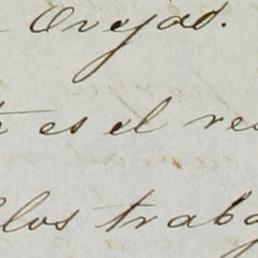 Ovejas.
es el re
los traba